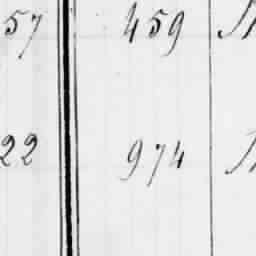 57 459
22 974